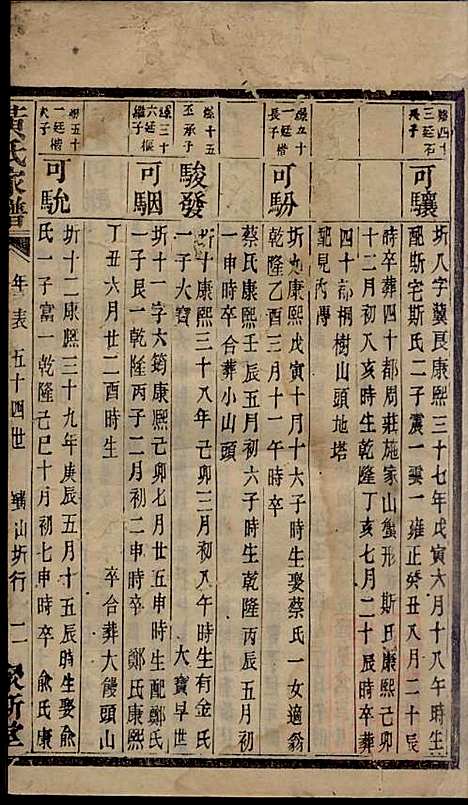 緣四十
三廷石
長子
可驤
圻八字蓂良康熙三十七年戊寅六月十八午時生
配斯宅斯氏二子震一雲一雍正癸丑八月二十辰
時卒葬四十都周莊施家山蟹形 斯氏康熙己卯
十二月初八亥時生乾隆丁亥七月二十辰時卒葬
四十都桐樹山頭地塔
緣五十
一廷楷
長子
可馚
圻九康熙戊寅十月十六子時生娶蔡氏一女適翁
乾隆乙酉三月十一午時卒
配見內傳
蔡氏康熙壬辰五月初六子時生乾隆丙辰五月初
一申時卒合葬小山頭
緣十五
丕承子
駿發
圻十康熙三十八年己卯三月初八午時生有金氏
一子大寶 大寶早世
緣三十
六廷樞
繼子
可駰
圻十一字六筠康熙己卯七月廿五申時生配鄭氏
一子艮一乾隆丙子二月初二申時卒 鄭氏康熙
丁丑六月廿二酉時生 卒合葬大饅頭山
緣五十
一廷楷
次子
可馻
圻十二康熙三十九年庚辰五月十五辰時生娶俞
氏一子富一乾隆己巳十月初七申時卒 俞氏康
黃氏家譜
年表 五十四世 圻行 二